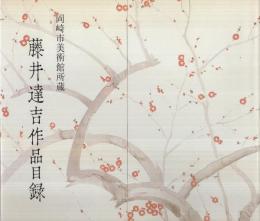 岡崎市美術館所蔵
藤井達吉作品目録